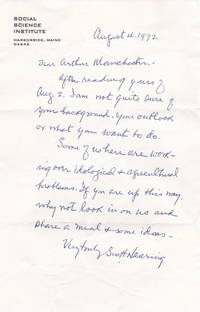 SOCIAL
SCIENCE
INSTITUTE
HARBORSIDE, MAINE
04642
August 4, 1972
Dear Arthur Manchester:-
After reading yours of
Aug 2. I am not quite sure of
your background, your outlook
or what you want to do.
Some of us here are work-
ing over idological & agricultural
problems. If you are up this way,
why not look in on us and
share a meal & some ideas -
Very truly Scott Nearing.